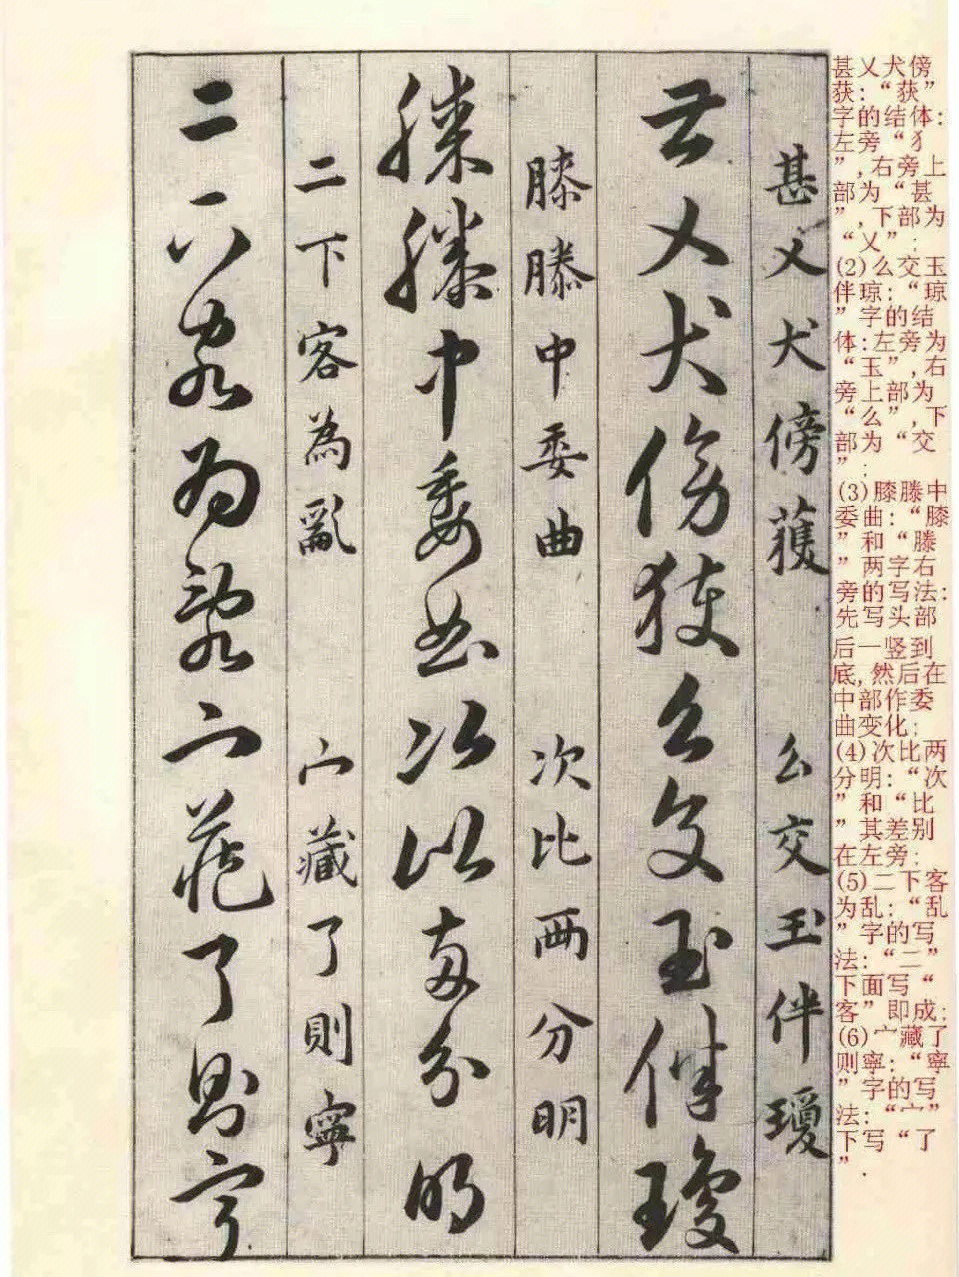 甚乂犬傍
获：“获”
字的结体：
左旁“犭
”，右旁上
部为“甚
”，下部为
“乂”；
(2)么交玉
伴琼：“琼
”字的结
体：左旁为
“玉”，右
旁上部为
“么”，下
部为“交
”；
(3)膝滕中
委曲：“膝
”和“滕
”两字右
旁的写法：
先写头部
后一竖到
底，然后在
中部作委
曲变化；
(4)次比两
分明：“次
”和“比
”其差别
在左旁；
(5)二下客
为乱：“乱
”字的写
法：“二”
下面写“
客”即成；
(6)宀藏了
则寧：“寧
”字的写
法：“宀”
下写“了
”．
甚乂犬傍獲 么交玉伴瓊
甚乂犬傍獲么交玉伴瓊
膝滕中委曲 次比兩分明
膝滕中委曲次比兩分明
二下客為亂 宀藏了則寧
二下客為亂宀藏了則寧